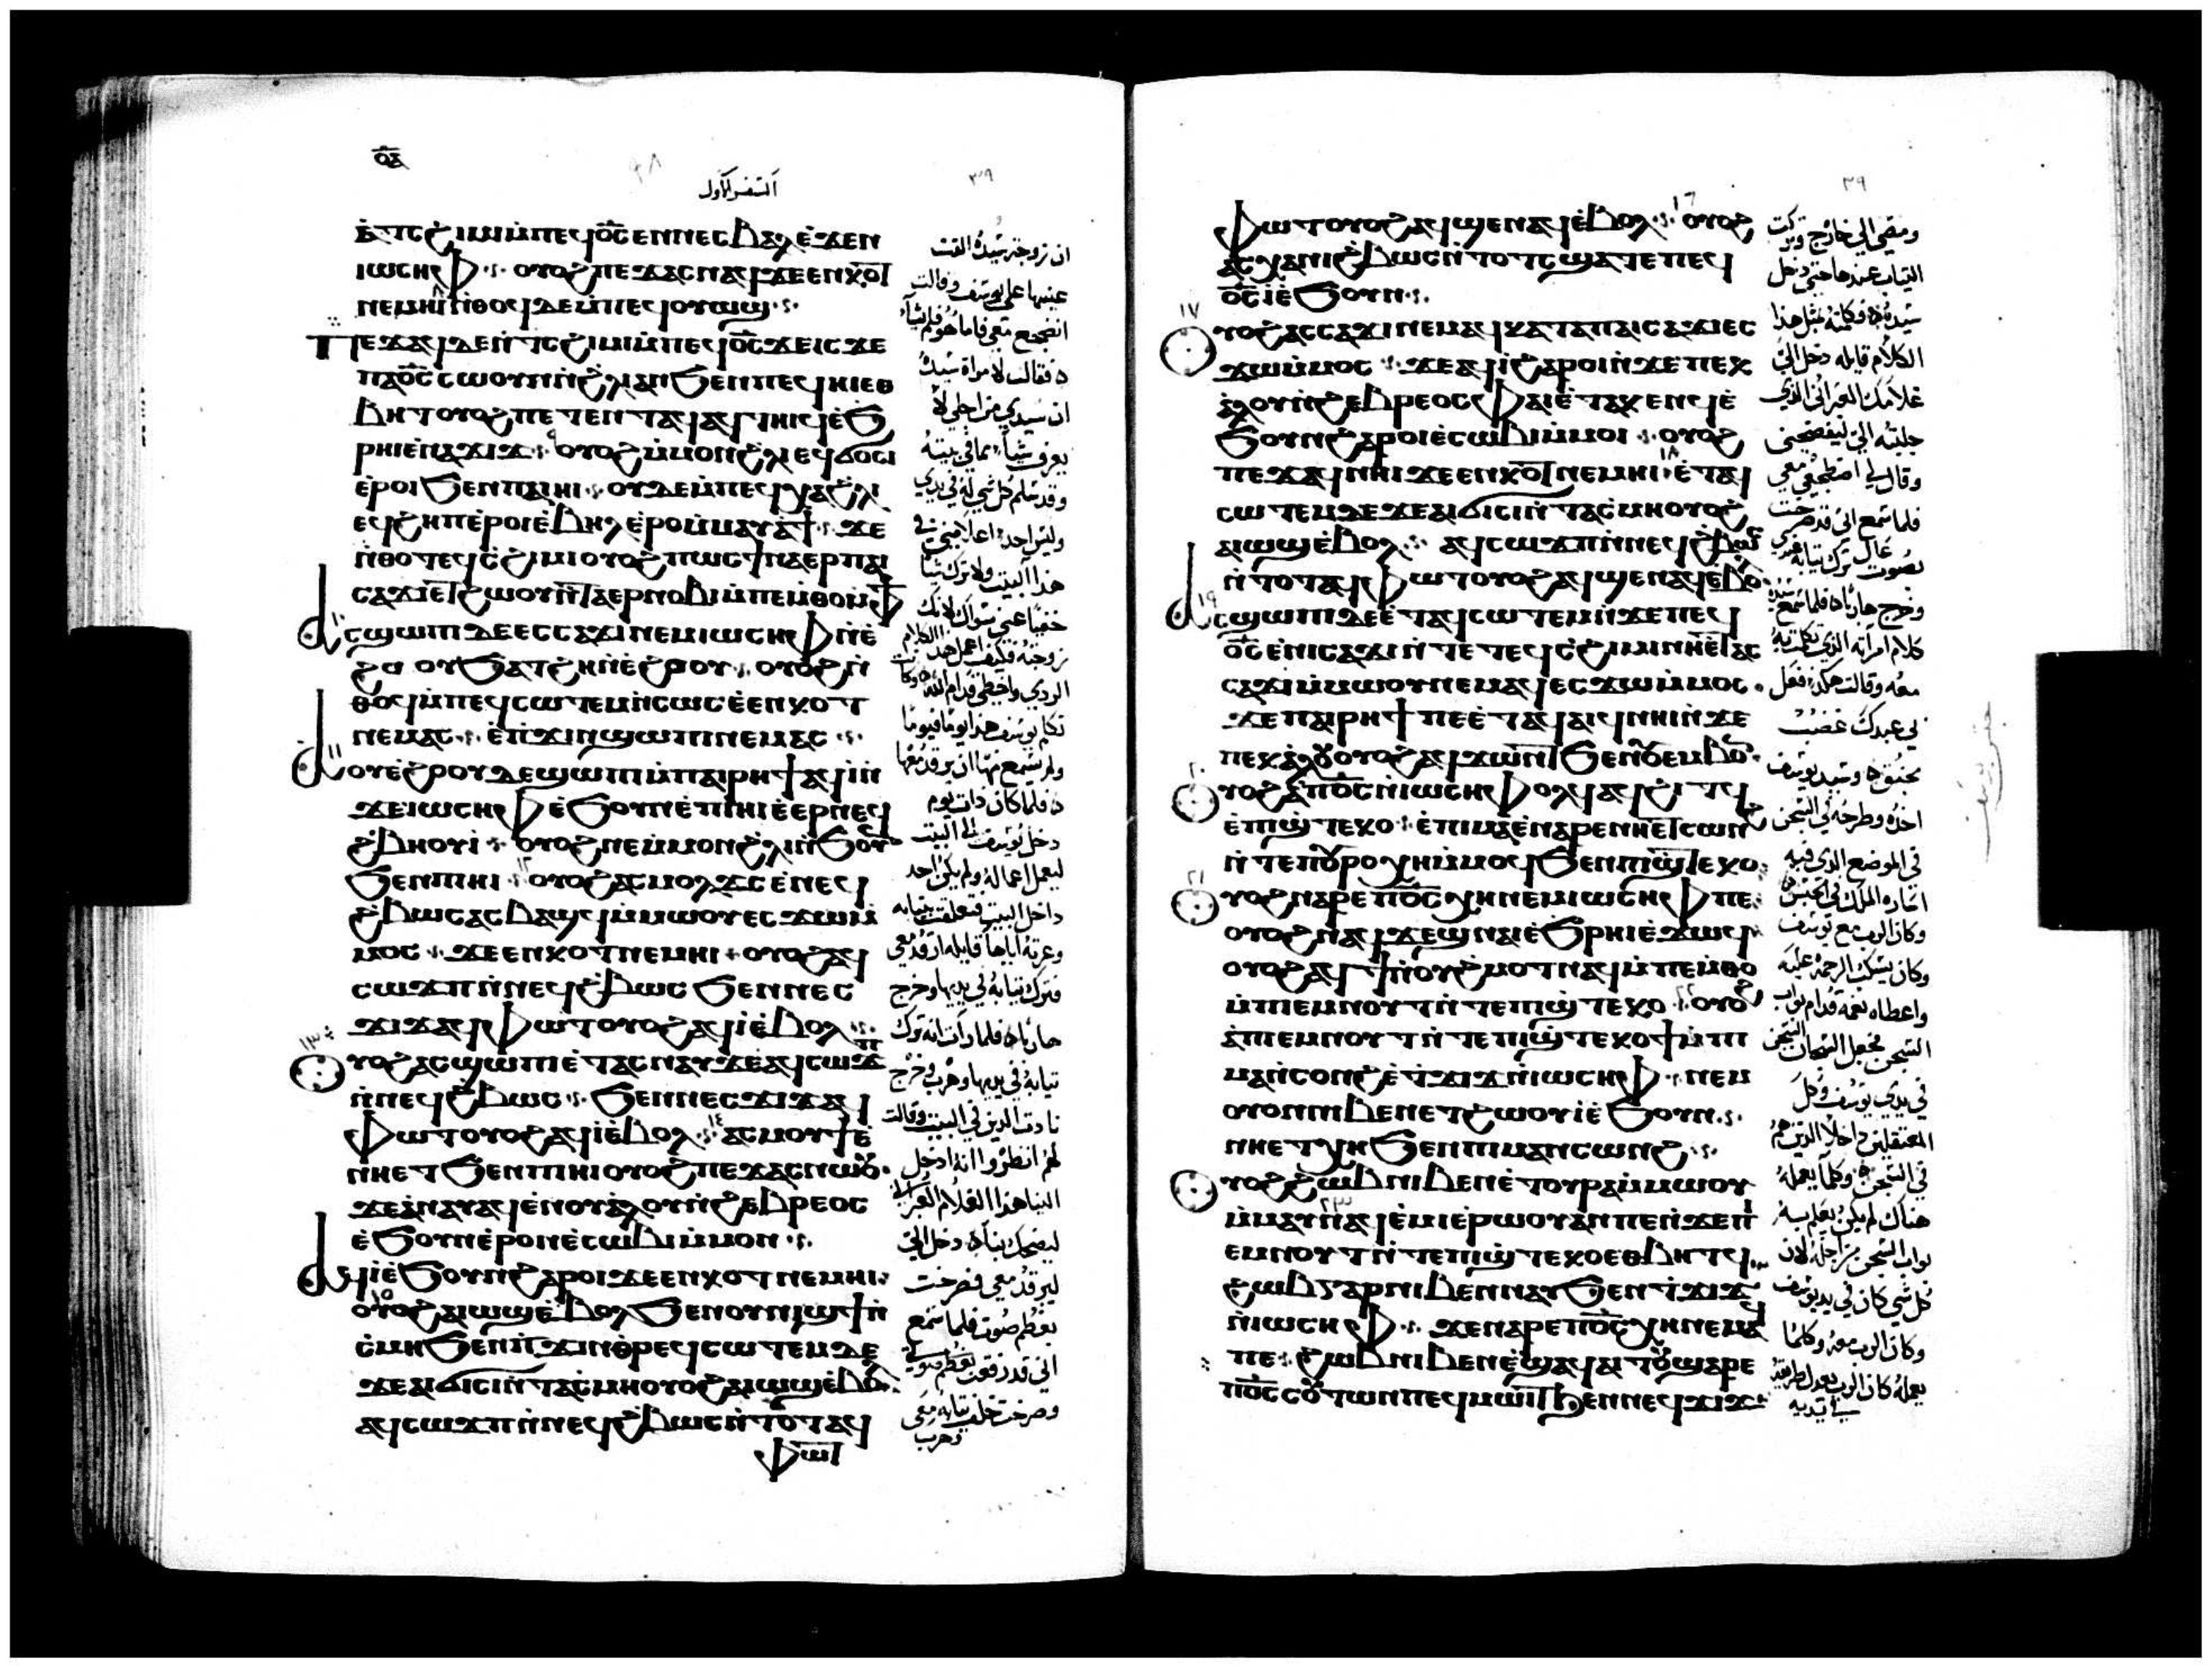 ⲟⲇ
السفر الاول
٣٩
ⲁ̀ⲧⲥϩⲓⲙⲓⲙ̀ⲡⲉϥⲟ̅ⲥ̅ⲉⲛⲛⲉⲥⲃⲁⲗⲉ̀ϫⲉⲛ
ⲓⲱⲥⲏⲫ ⲟⲩⲟϩⲡⲉϫⲁⲥⲛⲁϥϫⲉⲉⲛⲭⲟ̅ⲧ
ⲛⲉⲙⲏⲓⲛ̀ⲑⲟϥⲇⲉⲙ̀ⲡⲉϥⲟⲩⲱϣ
ⲡⲉϫⲁϥⲇⲉⲛ̀ⲧⲥϩⲓⲙⲓⲙ̀ⲡⲉϥⲟ̅ⲥ̅ϫⲉⲓⲥϫⲉ
ⲡⲁⲟ̅ⲥ̅ⲥⲱⲟⲩⲛⲛ̀ϩⲗⲁⲛϧⲉⲛⲡⲉϥⲏⲓⲉⲑ
ⲃⲏⲧⲟⲩⲟϩⲡⲉⲧⲉⲛⲧⲁϥⲁϥⲧⲏⲓϥⲉ̀ϧ
ⲣⲏⲓⲉ̀ⲛⲁϫⲓϫ ⲟⲩⲟϩⲙ̀ⲙⲟⲛϩⲗⲉϥϭⲟⲥⲓ
ⲉ̀ⲣⲟⲓϧⲉⲛⲡⲁⲓⲏⲓ ⲟⲩⲇⲉⲙ̀ⲡⲉϥⲭⲁϩⲗⲓ
ⲉϥϩⲏⲡⲉ̀ⲣⲟⲓⲉ̀ⲃⲏⲗⲉ̀ⲣⲟⲙ̀ⲙⲁⲩⲁϯ ϫⲉ
ⲛ̀ⲑⲟⲧⲉϥⲥϩⲓⲙⲓⲟⲩⲟϩⲡⲱⲥϯⲛⲁⲉⲣⲡⲁⲓ
ⲥⲁϫⲓⲉ̅ⲧϩⲱⲟⲩⲛ̅ⲧⲁⲉⲣⲛⲟⲃⲓⲙ̀ⲡⲉⲙⲑⲟⲙ̀ⲫϯ
ⲁⲥϣⲱⲡⲓⲇⲉⲉⲥⲥⲁϫⲓⲛⲉⲙⲓⲱⲥⲏⲫⲛ̀ⲉ̀
ϩⲟⲟⲩϧⲁⲧϩⲏⲛ̀ⲉ̀ϩⲟⲟⲩ ⲟⲩⲟϩⲛ̀
ⲑⲟϥⲙ̀ⲡⲉϥⲥⲱⲧⲉⲙⲛ̀ⲥⲱⲥⲉ̀ⲉⲛⲭⲟⲧ
ⲛⲉⲙⲁⲥ ⲉ̀ⲡϫⲓⲛϣⲱⲡⲓⲛⲉⲙⲁⲥ
ⲁⲟⲩⲉ̀ϩⲟⲟⲩⲇⲉϣⲱⲡⲓⲙ̀ⲡⲁⲓⲣⲏϯⲁϥⲓ̀ⲛ̀
ϫⲉⲓⲱⲥⲏⲫⲉ̀ϧⲟⲩⲛⲉ̀ⲡⲓⲏⲓⲉ̀ⲉⲣⲡⲉϥ
ϩⲃⲏⲟⲩⲓ̀ ⲟⲩⲟϩⲛⲉⲙ̀ⲙⲟⲛϩⲗⲓⲛ̀ϧⲟⲩⲛ
ϧⲉⲛⲡⲓⲏⲓ ⲟⲩⲟϩⲁⲥⲙⲟⲗϫⲥⲉ̀ⲛⲉϥ
ϩ̀ⲃⲱⲥⲁⲥⲃⲁϣϥⲙ̀ⲙⲱⲟⲩⲉⲥϫⲱⲙ̀
ⲙⲟⲥ ϫⲉⲉⲛⲭⲟⲧⲛⲉⲙⲏⲓ ⲟⲩⲟϩⲁϥ
ⲥⲱϫⲡⲛ̀ⲛⲉϥϩ̀ⲃⲱⲥϧⲉⲛⲛⲉⲥ
ϫⲓϫⲁϥⲫⲱⲧⲟⲩⲟϩⲁϥⲓ̀ⲉ̀ⲃⲟⲗ
ⲟⲩⲟϩⲁⲥϣⲱⲡⲓⲉ̀ⲧⲁⲥⲛⲁⲩϫⲉⲁϥⲥⲱϫⲡ
ⲛ̀ⲛⲉϥϩ̀ⲃⲱⲥ ϧⲉⲛⲛⲉⲥϫⲓϫⲁϥ
ⲫⲱⲧⲟⲩⲟϩⲁϥⲓ̀ⲉ̀ⲃⲟⲗ ⲁⲥⲙⲟⲩϯⲉ̀
ⲛⲏⲉⲧϧⲉⲛⲡⲓⲏⲓⲟⲩⲟϩⲡⲉϫⲁⲥⲛⲱⲟⲩ
ϫⲉⲁ̀ⲛⲁⲩⲁϥⲉ̀ⲛⲟⲩⲁ̀ⲗⲟⲩⲛ̀ϩⲉⲃⲣⲉⲟⲥ
ⲉ̀ϧⲟⲩⲛⲉ̀ⲣⲟⲛⲉ̀ⲥⲱⲃⲓⲙ̀ⲙⲟⲛ
ⲁϥⲓ̀ⲉ̀ϧⲟⲩⲛϩⲁⲣⲟⲓϫⲉⲉⲛⲭⲟⲧⲛⲉⲙⲏⲓ
ⲟⲩⲟϩⲁⲓⲱϣⲉ̀ⲃⲟⲗϧⲉⲛⲟⲩⲛⲓϣϯⲛ̀
ⲥ̀ⲙⲏϧⲉⲛⲡ̀ϫⲓⲛⲑⲣⲉϥⲥⲱⲧⲉⲙⲇⲉ
ϫⲉⲁⲓϭⲓⲥⲓⲛ̀ⲧⲁⲥⲙⲏⲟⲩⲟϩⲁⲓⲱϣⲉ̀ⲃⲟⲗ
ⲁϥⲥⲱϫⲡⲛ̀ⲛⲉϥϩ̀ⲃⲱⲥⲛ̀ⲧⲟⲧⲁϥ
ⲫⲱ̅ⲧ
ان زوجة سيده القت
عينيها على يوسف وقالت
انضجع معي فاما هو فلم يشاء
فقالت لامراة سيده
ان سيدي من اجلي لا
يعرف شيا مما في بيته
وقد سلم كل شي له في يدي
وليس احد اعلا مني في
هذا البيت ولا ترك شيا
خفيا عني سواك لانك
زوجته فكيف اعمل هذا الكلام
الردي واخطي قدام الله وكانت
تكلم يوسف هذا يوما فيوما
ولم يسمع منها ان يرقد معها
فلما كان ذات يوم
دخل يوسف الى البيت
ليعمل اعماله ولم يكن احد
داخل البيت فتعلقت بثيابه
وعرته اياها قايله ارقد معي
فترك ثيابه في يديها وخرج
هاربا فلما رات انه ترك
ثيابه في يديها وهرب وخرج
نادت الذين في البيت وقالت
لهم انظروا انه ادخل
الينا هذا الغلام العبراني
ليضحك بنا دخل الي
ليرقد معي فصرخت
بعظم صوت فلما سمع
اني قد رفعت بعظم صوتي
وصرخت خلف ثيابه معي
وهرب
٣٩
ⲫⲱⲧⲟⲩⲟϩⲁϥϣⲉⲛⲁϥⲉ̀ⲃⲟⲗ ⲟⲩⲟϩ
ⲁⲥⲭⲁⲛⲓϩ̀ⲃⲱⲥⲛ̀ⲧⲟⲧⲥϣⲁⲧⲉⲡⲉϥ
ⲟ̅ⲥ̅ⲓ̀ⲉ̀ϧⲟⲩⲛ
ⲟⲩⲟϩⲁⲥⲥⲁϫⲓⲛⲉⲙⲁϥⲕⲁⲧⲁⲡⲁⲓⲥⲁϫⲓⲉⲥ
ϫⲱⲙ̀ⲙⲟⲥ ϫⲉⲁϥⲓ̀ϩⲁⲣⲟⲓⲛ̀ϫⲉⲡⲉⲕ
ⲁ̀ⲗⲟⲩⲛ̀ϩⲉⲃⲣⲉⲟⲥⲫⲁⲓⲉ̀ⲧⲁⲕⲉⲛϥⲉ̀
ϧⲟⲩⲛϩⲁⲣⲟⲓⲉ̀ⲥⲱⲃⲓⲙ̀ⲙⲟⲓ ⲟⲩⲟϩ
ⲡⲉϫⲁϥⲛⲏⲓϫⲉⲉⲛⲭⲟ̅ⲧⲛⲉⲙⲏⲓ ⲉ̀ⲧⲁϥ
ⲥⲱⲧⲉⲙⲇⲉϫⲉⲁⲓϭⲓⲥⲓⲛ̀ⲧⲁⲥⲙⲏⲟⲩⲟϩ
ⲁⲓⲱϣⲉ̀ⲃⲟⲗ ⲁϥⲥⲱϫⲡⲛ̀ⲛⲉϥϩ̀ⲃⲱⲥ
ⲛ̀ⲧⲟⲧⲁϥⲫⲱⲧⲟⲩⲟϩⲁϥϣⲉⲛⲁϥⲉ̀ⲃⲟⲗ
ⲁⲥϣⲱⲡⲓⲇⲉⲉ̀ⲧⲁϥⲥⲱⲧⲉⲙⲛ̀ϫⲉⲡⲉϥ
ⲟ̅ⲥ̅ⲉ̀ⲛⲓⲥⲁϫⲓⲛ̀ⲧⲉⲧⲉϥⲥϩⲓⲙⲓⲛⲏⲉ̅ⲧⲁⲥ
ⲥⲁϫⲓⲙ̀ⲙⲱⲟⲩⲛⲉⲙⲁϥⲉⲥϫⲱⲙ̀ⲙⲟⲥ
ϫⲉⲡⲁⲓⲣⲏϯⲡⲉⲉ̀ⲧⲁϥⲁⲓϥⲛⲏⲓⲛ̀ϫⲉ
ⲡⲉⲕⲁ̀ⲗⲟⲩⲟⲩⲟϩⲁϥϫⲱⲛ̅ⲧϧⲉⲛⲟⲩⲉⲙⲃⲟⲛ
ⲟⲩⲟϩⲁ̀ⲡⲟ̅ⲥ̅ⲛ̀ⲓⲱⲥⲏⲫⲟⲗϥⲁϥϩⲓⲧϥ
ⲉ̀ⲡⲓϣ̀ⲧⲉⲕⲟ ⲉ̀ⲡⲓⲙⲁⲉ̀ⲛⲁⲣⲉⲛⲏⲉ̅ⲧⲥⲱⲛϩ
ⲛ̀ⲧⲉⲡⲟⲩⲣⲟⲭⲏⲙ̀ⲙⲟϥϧⲉⲛⲡⲓϣ̅ⲧⲉⲕⲟ
ⲟⲩⲟϩⲛⲁⲣⲉⲡⲟ̅ⲥ̅ⲭⲏⲛⲉⲙⲓⲱⲥⲏⲫⲡⲉ
ⲟⲩⲟϩⲛⲁϥϫⲉϣⲛⲁⲓⲉ̀ϧⲣⲏⲓⲉ̀ϫⲱϥ
ⲟⲩⲟϩⲁϥϯⲛ̀ⲟⲩϩ̀ⲙⲟⲧⲛⲁϥⲙ̀ⲡⲉⲙⲑⲟ
ⲙ̀ⲡⲓⲉⲙⲛⲟⲩⲧⲛ̀ⲧⲉⲡⲓϣ̀ⲧⲉⲕⲟ ⲟⲩⲟϩ
ⲁ̀ⲡⲓⲉⲙⲛⲟⲩⲧⲛ̀ⲧⲉⲡⲓϣ̀ⲧⲉⲕⲟϯⲙ̀ⲡⲓ
ⲙⲁⲛ̀ⲥⲟⲛϩⲉ̀ⲧ̀ϫⲓϫⲛ̀ⲓⲱⲥⲏⲫ ⲛⲉⲙ
ⲟⲩⲟⲛⲛⲓⲃⲉⲛⲉⲧϩⲱⲟⲩⲓ̀ⲉ̀ϧⲟⲩⲛ
ⲛⲏⲉⲧⲭⲏϧⲉⲛⲡⲓⲙⲁⲛⲥⲱⲛϩ
ⲟⲩⲟϩϩⲱⲃⲛⲓⲃⲉⲛⲉ̀ⲧⲟⲩⲣⲁⲙ̀ⲙⲱⲟⲩ
ⲙ̀ⲙⲁⲩⲛⲁϥⲉ̀ⲙⲓⲉ̀ⲣⲱⲟⲩⲁⲛⲡⲉⲛ̀ϫⲉⲡⲓ
ⲉⲙⲛⲟⲩⲧⲛ̀ⲧⲉⲡⲓϣ̀ⲧⲉⲕⲟⲉⲑⲃⲏⲧϥ
ϩⲱⲃⲅⲁⲣⲛⲓⲃⲉⲛⲛⲁⲩϧⲉⲛⲧ̀ϫⲓϫ
ⲛ̀ⲓⲱⲥⲏⲫ ϫⲉⲛⲁⲣⲉⲡⲟ̅ⲥ̅ⲭⲏⲛⲉⲙⲁϥ
ⲡⲉ ϩⲱⲃⲛⲓⲃⲉⲛⲉ̀ϣⲁϥⲁⲓⲧⲟⲩϣⲁⲣⲉ
ⲡⲟ̅ⲥ̅ⲥⲟⲩⲧⲱⲛⲡⲉϥⲙⲱⲓ̅ⲧϧⲉⲛⲛⲉϥϫⲓϫ
ومضى الى خارج وتركت
الثياب عندها حتى دخل
سيده وكلمته بمثل هذا
الكلام قايله دخل الي
غلامك العبراني الذي
جلبته الي ليفضحني
وقال لي اضطجعي معي
فلما سمع اني قد صرخت
بصوت عال ترك ثيابه عندي
وخرج هاربا فلما سمع سيده
كلام امراته الذي تكلمت به
معه وقالت هكذا فعل
بي عبدك غضب
بحنق وسيد يوسف
اخذه وطرحه في السجن
في الموضع الذي فيه
اسارى الملك في الحبس
وكان الرب مع يوسف
وكان يسكب الرحمة عليه
واعطاه نعمة قدام بواب
السجن فجعل السجان السجن
في يدي يوسف وكل
المعتقلين داخلا الذين هم
في السجن وكلما يعمله
هناك لم يكن يعلم به
بواب السجن من اجله لان
كل شي كان في يد يوسف
وكان الرب معه وكلما
يعمله كان الرب يعدل طريقه
في يديه